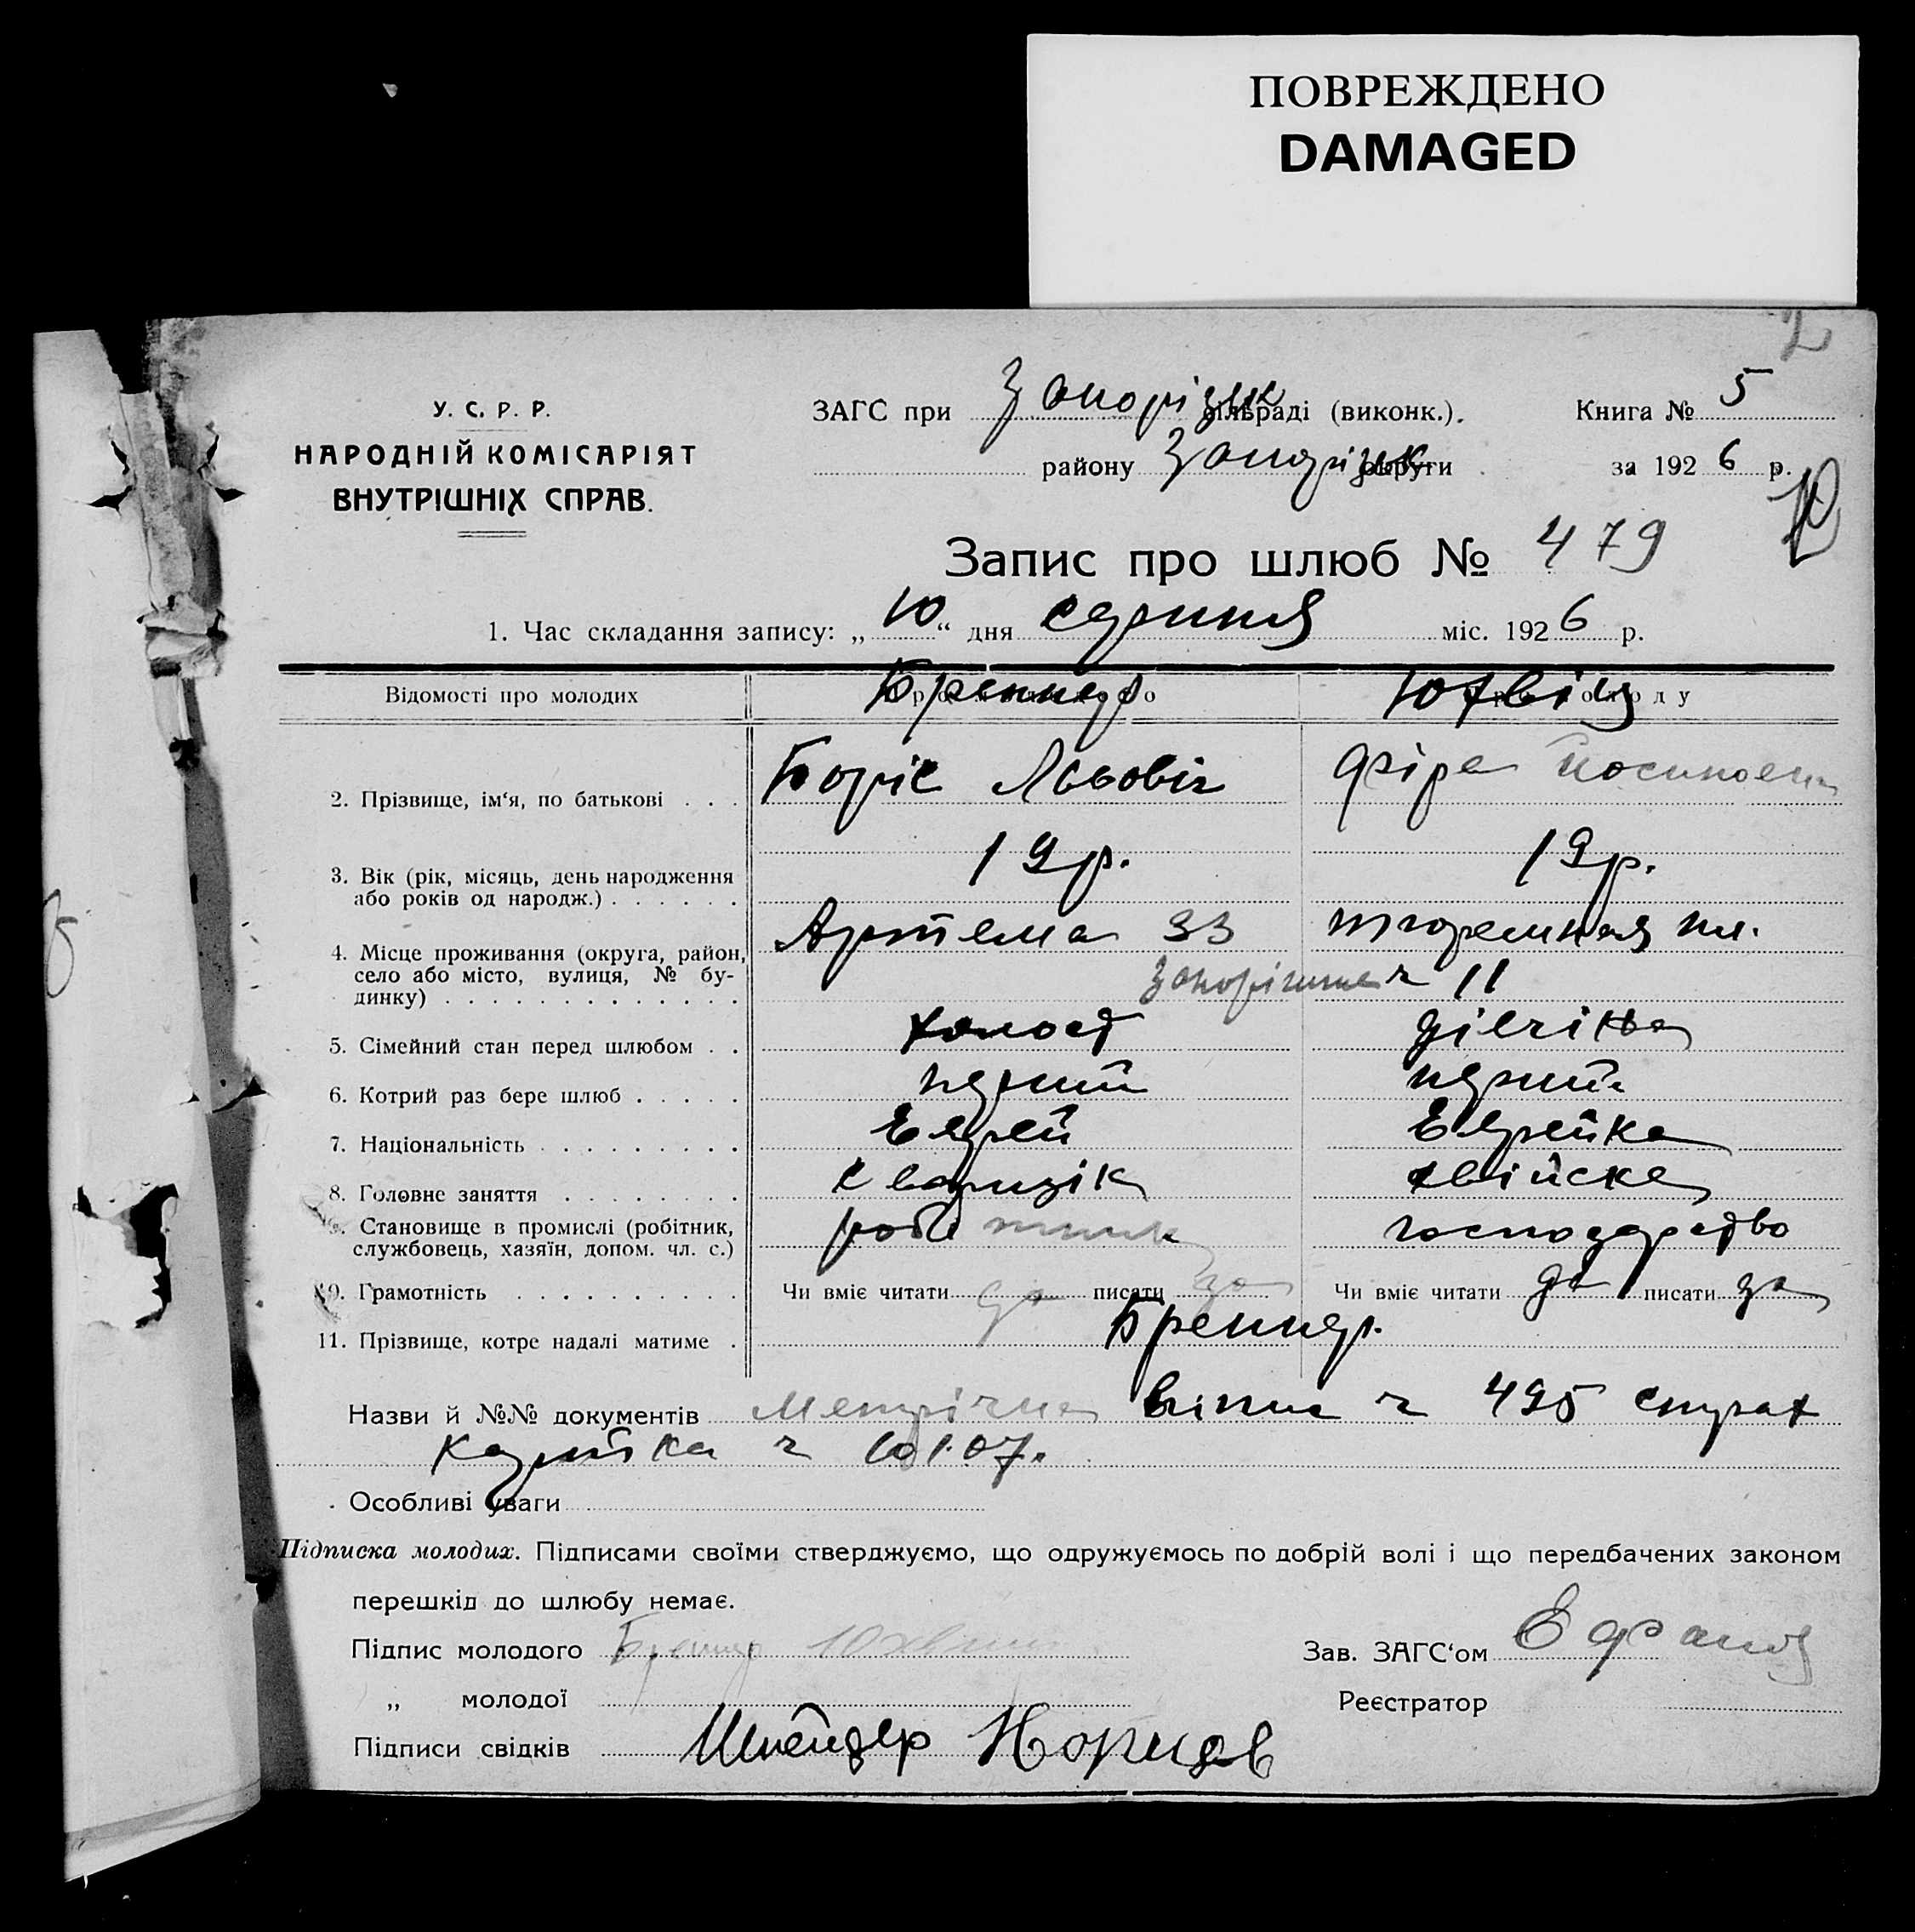 ПОВРЕЖДЕНО
DAMAGED
2
У. С. Р. Р.
НАРОДНІЙ КОМІСАРІЯТ
ВНУТРІШНІХ СПРАВ.
ЗАГС при Запорізьк сільраді (виконк.). Книга № 5
району Запорізьк округи за 1926 р.
Запис про шлюб № 479
1. Час складання запису: „10“ дня серпня міс. 1926 р.
Відомості про молодих
Бреннер
2. Прізвище, ім‘я, по батькові . . . Боріс Львовіч Фіра
3. Вік (рік, місяць, день народження 19р. 19р.
або років од народж.) . . . . . .
4. Місце проживання (округа, район, Артема 33
село або місто, вулиця, № бу- 11
динку) . . . . . . . . . . . . .
5. Сімейний стан перед шлюбом . . холост дівчінка
6. Котрий раз бере шлюб . . . . . перший перший
7. Національність . . . . . . . . . Еврей Еврейка
8. Головне заняття . . . . . . . .
9. Становище в промислі (робітник, робітник господарство
службовець, хазяїн, допом. чл. с.)
10. Грамотність . . . . . . . . . . Чи вміє читати да писати да Чи вміє читати да писати да
11. Прізвище, котре надалі матиме . Бреннер.
Назви й №№ документів Метрічна віпис ч 495 страх
картка ч 10107.
Особливі уваги
Підписка молодих. Підписами своїми стверджуємо, що одружуємось по добрій волі і що передбачених законом
перешкід до шлюбу немає.
Підпис молодого Бреннер
Зав. ЗАГС‘ом
„ молодої
Реєстратор
Підписи свідків